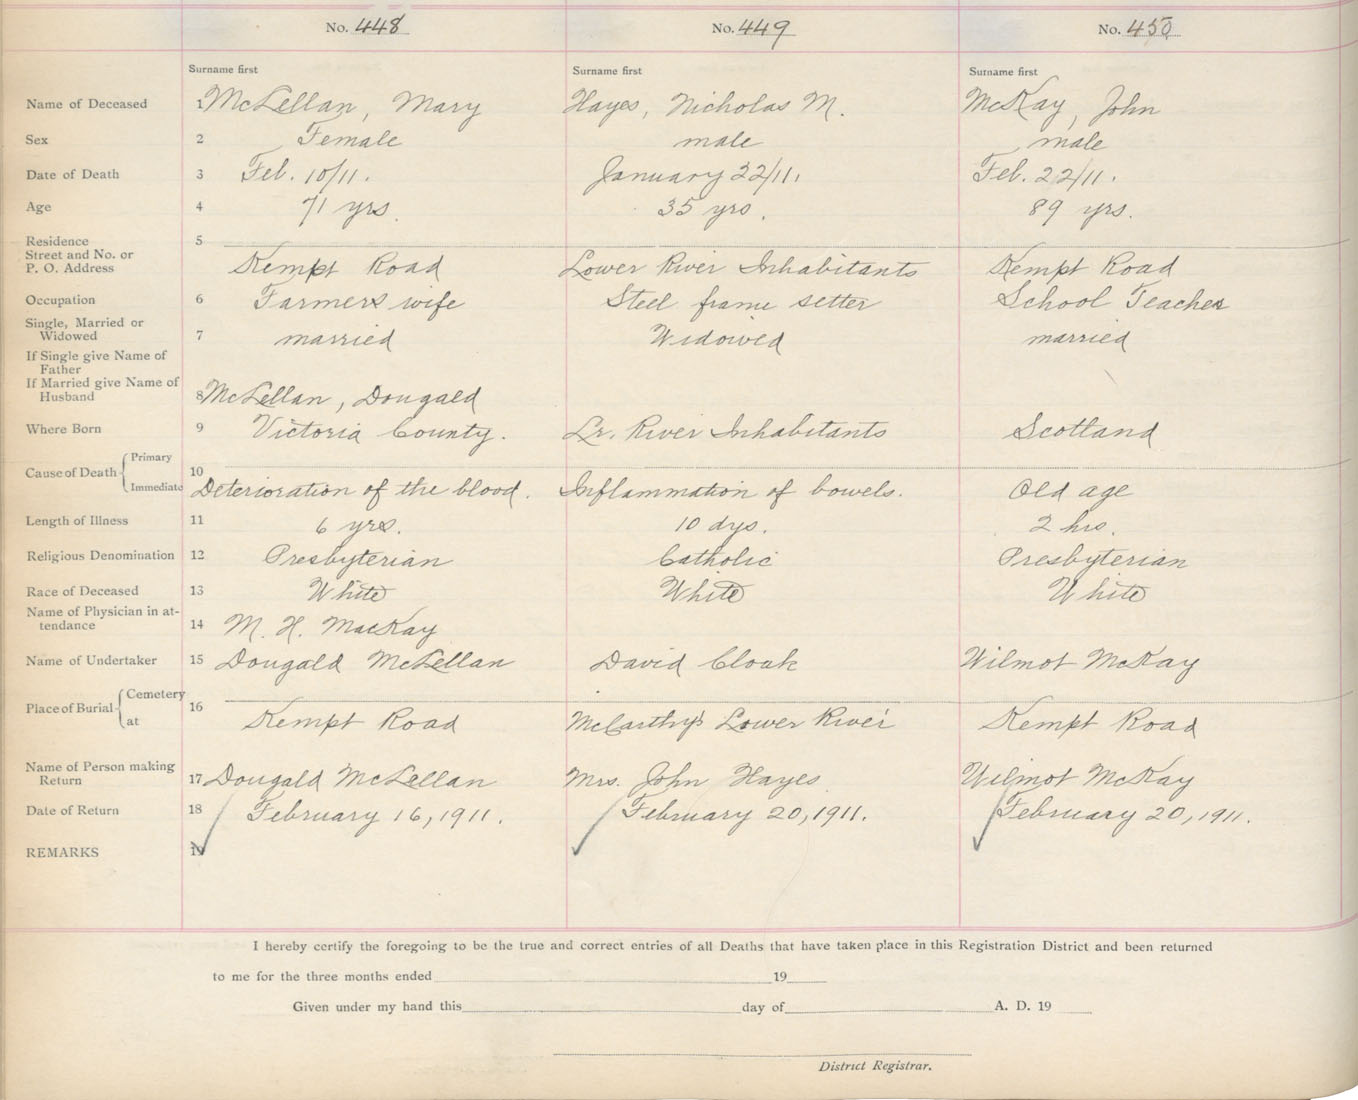 No. 448 No. 449 No. 450
Surname first Surname first Surname first
Name of Deceased 1 McLellan, Mary Hayes, Nicholas M. McKay, John
Sex 2 Female male male
Date of Death 3 Feb. 10/11. January 22/11. Feb. 22/11.
Age 4 71 yrs. 35 yrs. 89 yrs.
Residence 5
Street and No. or
P. O. Address Kempt Road Lower River Inhabitants Kempt Road
Occupation 6 Farmers wife Steel frame setter School Teacher
Single, Married or
Widowed 7 married Widowed married
If Single give Name of
Father
If Married give Name of
Husband 8 McLellan, Dougald
Where Born 9 Victoria County. Lr. River Inhabitants Scotland
Cause of Death Primary 10
Immediate Deterioration of the blood. Inflammation of bowels. Old age
Length of Illness 11 6 yrs. 10 dys. 2 hrs.
Religious Denomination 12 Presbyterian Catholic Presbyterian
Race of Deceased 13 White White White
Name of Physician in at-
tendance 14 M. H. MacKay
Name of Undertaker 15 Dougald McLellan David Cloak Wilmot McKay
Place of Burial Cemetery 16
at Kempt Road McCarthy's Lower River Kempt Road
Name of Person making
Return 17 Dougald McLellan Mrs. John Hayes Wilmot McKay
Date of Return 18 February 16, 1911. February 20, 1911. February 20, 1911.
REMARKS 19
I hereby certify the foregoing to be the true and correct entries of all Deaths that have taken place in this Registration District and been returned
to me for the three months ended 19
Given under my hand this day of A. D. 19
District Registrar.